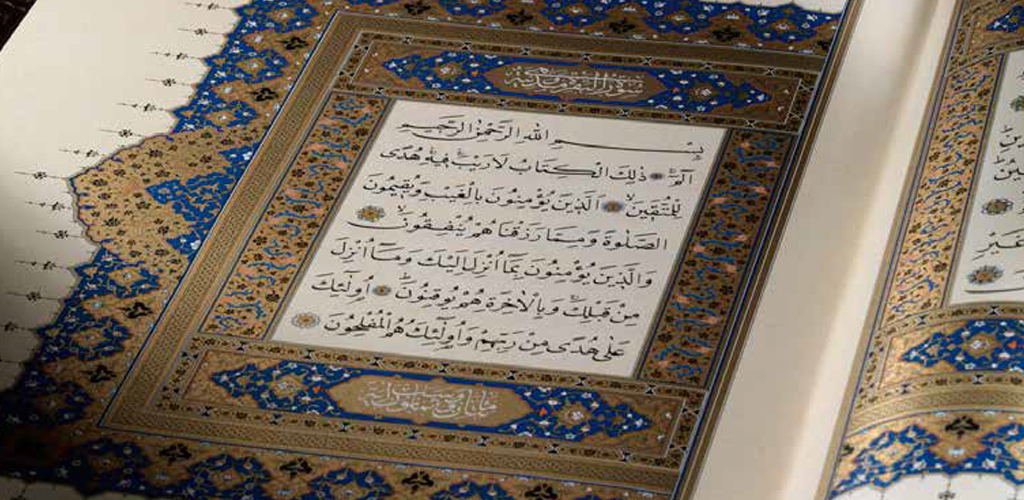 سورة البقرة
بِسْمِ اللهِ الرَّحْمٰنِ الرَّحِيمِ
الٓمٓ ذٰلِكَ الْكِتَابُ لَا رَيْبَ فِيهِ هُدًى
لِلْمُتَّقِينَ الَّذِينَ يُؤْمِنُونَ بِالْغَيْبِ وَيُقِيمُونَ
الصَّلٰوةَ وَمِمَّا رَزَقْنَاهُمْ يُنْفِقُونَ
وَالَّذِينَ يُؤْمِنُونَ بِمَٓا اُنْزِلَ اِلَيْكَ وَمَٓا اُنْزِلَ
مِنْ قَبْلِكَ وَبِالْاٰخِرَةِ هُمْ يُوقِنُونَ اُو۬لٰٓئِكَ
عَلٰى هُدًى مِنْ رَبِّهِمْ وَاُو۬لٰٓئِكَ هُمُ الْمُفْلِحُونَ
غَيْرِ